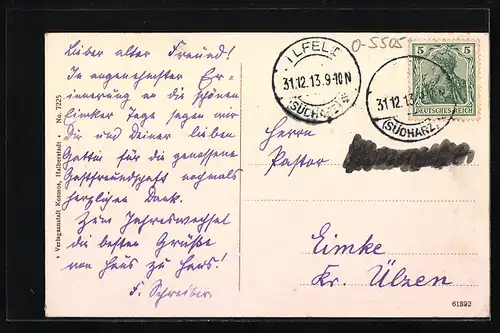 Lieber alter Freund!
In angenehmster Er-
innerung an die schönen
Eimker Tage sagen wir
Dir und Deiner lieben
Gattin für die genossene
Gastfreundschaft nochmals
herzlichen Dank.
Zum Jahreswechsel
die besten Grüße
von Haus zu Haus!
F. Schreiber.
Verlagsanstalt Kosmos, Halberstadt No. 7225
ILFELT
31.12.13.9-10N
(SÜDHARZ)
0-5505
5 5
DEUTSCHES REICH
31.12.13
(SÜDHARZ)
Herrn
Pastor
Eimke
Kr. Ülzen
61892